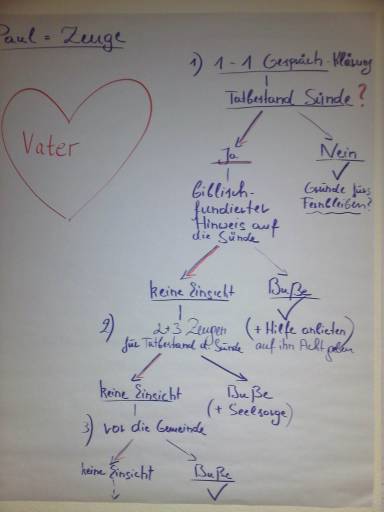 Paul = Zeuge
1) 1-1 Gespräch-Klärung
Tatbestand Sünde?
Vater
Ja
Nein
Biblisch-
fundierter
Hinweis auf
die Sünde
Gründe fürs
Fernbleiben?
keine Einsicht
Buße
2) 2+3 Zeugen
für Tatbestand d. Sünde
(+ Hilfe anbieten)
auf ihn Acht geben
keine Einsicht
Buße
(+ Seelsorge)
3) vor die Gemeinde
keine Einsicht
Buße